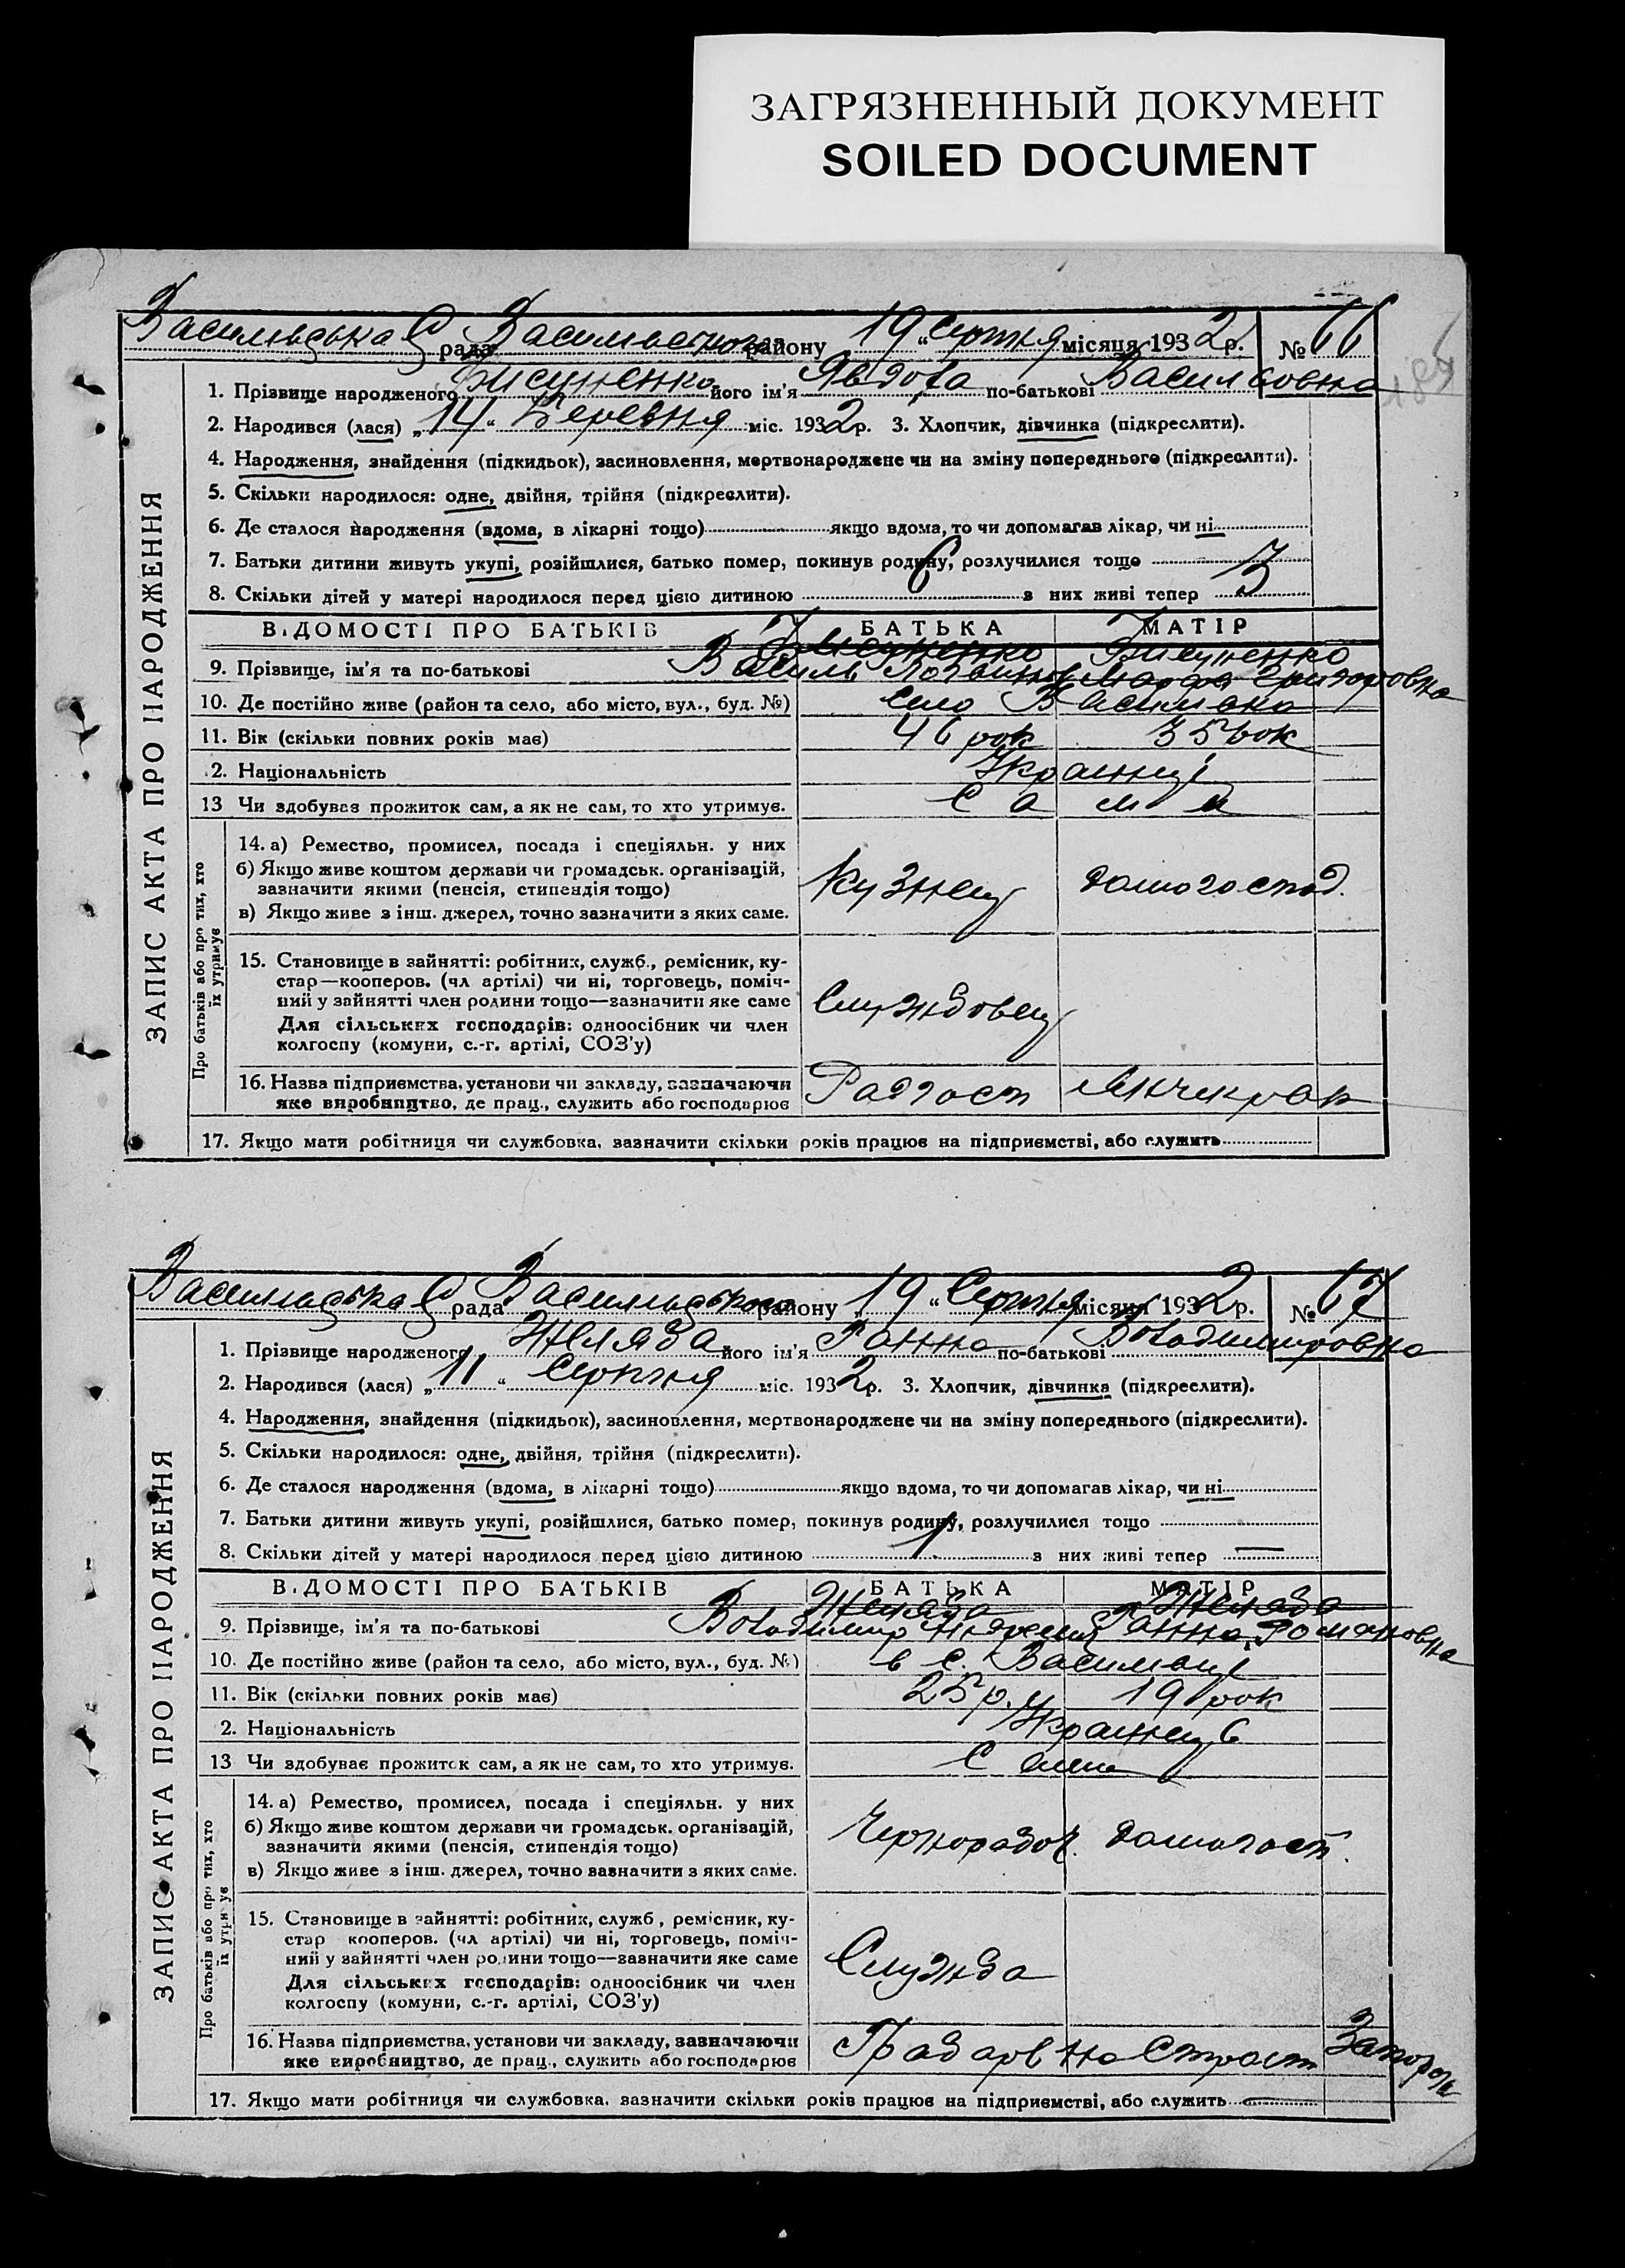 ЗАГРЯЗНЕННЫЙ ДОКУМЕНТ
SOILED DOCUMENT
рада району 19 " Серпня місяця 1932 р. № 66
1. Прізвище народженого його ім'я Явдоха по-батькові Васильовна
2. Народився (лася) „ 14 " міс. 1932 р. 3. Хлопчик, дівчинка (підкреслити).
4. Народження, знайдення (підкидьок), засиновлення, мертвонароджене чи на зміну попереднього (підкреслити).
5. Скільки народилося: одне, двійня, трійня (підкреслити).
6. Де сталося народження (вдома, в лікарні тощо) якщо вдома, то чи допомагав лікар, чи ні
7. Батьки дитини живуть укупі, розійшлися, батько помер, покинув родину, розлучилися тощо
8. Скільки дітей у матері народилося перед цією дитиною 6 з них живі тепер 3
ЗАПИС АКТА ПРО НАРОДЖЕННЯ
ВІДОМОСТІ ПРО БАТЬКІВ БАТЬКА МАТІР
9. Прізвище, ім'я та по-батькові Василь Григоровна
10. Де постійно живе (район та село, або місто, вул., буд. №) Село
11. Вік (скільки повних років має) 46 рок 35 рок
2. Національність Українці
13 Чи здобуває прожиток сам, а як не сам, то хто утримує. Сами
Про батьків або про тих, хто їх утримує
14. а) Ремество, промисел, посада і спеціяльн. у них
б) Якщо живе коштом держави чи громадськ. організацій,
зазначити якими (пенсія, стипендія тощо)
Кузнец домогоспод.
в) Якщо живе з інш. джерел, точно зазначити з яких саме.
15. Становище в зайнятті: робітник, служб., ремісник, ку-
стар—кооперов. (чл артілі) чи ні, торговець, поміч-
ний у зайнятті член родини тощо—зазначити яке саме
Службовец
Для сільських господарів: одноосібник чи член
колгоспу (комуни, с.-г. артілі, СОЗ'у)
16. Назва підприємства, установи чи закладу, зазначаючи
яке виробництво, де прац., служить або господарює Радгосп Янчекрак
17. Якщо мати робітниця чи службовка, зазначити скільки років працює на підприємстві, або служить
рада району „ 19 " Серпня місяця 1932 р. № 67
1. Прізвище народженого Желяба його ім'я Ганна по-батькові Володимировна
2. Народився (лася) „ 11 " Серпня міс. 1932 р. 3. Хлопчик, дівчинка (підкреслити).
4. Народження, знайдення (підкидьок), засиновлення, мертвонароджене чи на зміну попереднього (підкреслити).
5. Скільки народилося: одне, двійня, трійня (підкреслити).
6. Де сталося народження (вдома, в лікарні тощо) якщо вдома, то чи допомагав лікар, чи ні
7. Батьки дитини живуть укупі, розійшлися, батько помер, покинув родину, розлучилися тощо
8. Скільки дітей у матері народилося перед цією дитиною 1 з них живі тепер —
ЗАПИС АКТА ПРО НАРОДЖЕННЯ
ВІДОМОСТІ ПРО БАТЬКІВ БАТЬКА МАТІР
Желяба Желяба
9. Прізвище, ім'я та по-батькові Володимир Ганна Романовна
10. Де постійно живе (район та село, або місто, вул., буд. №) в с.
11. Вік (скільки повних років має) 25 р. 19 рок
2. Національність
13 Чи здобуває прожиток сам, а як не сам, то хто утримує. Сами
Про батьків або про тих, хто їх утримує
14. а) Ремество, промисел, посада і спеціяльн. у них
б) Якщо живе коштом держави чи громадськ. організацій,
зазначити якими (пенсія, стипендія тощо)
Чернорабоч. домогосп.
в) Якщо живе з інш. джерел, точно зазначити з яких саме.
15. Становище в зайнятті: робітник, служб, ремісник, ку-
стар кооперов. (чл артілі) чи ні, торговець, поміч-
ний у зайнятті член родини тощо—зазначити яке саме
Служба
Для сільських господарів: одноосібник чи член
колгоспу (комуни, с.-г. артілі, СОЗ'у)
16. Назва підприємства, установи чи закладу, зазначаючи
яке виробництво, де прац., служить або господарює
17. Якщо мати робітниця чи службовка, зазначити скільки років працює на підприємстві, або служить